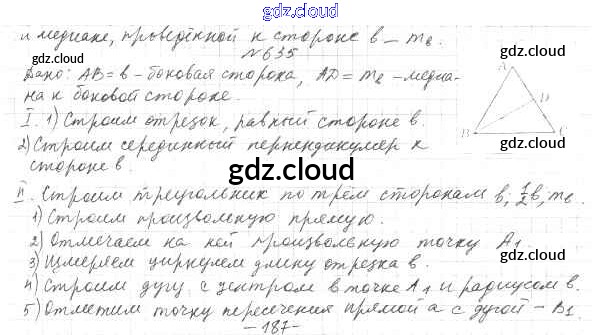 gdz.cloud
и медиане, проведённой к стороне b – m_b.
gdz.cloud
№635
gdz.cloud
Дано: AB = b – боковая сторона, AD = m_b – медиа-
на к боковой стороне.
A
D
B
C
I. 1) Строим отрезок, равный стороне b.
gdz.cloud
2) Строим серединный перпендикуляр к
стороне b.
gdz.cloud
II. Строим треугольник по трём сторонам b; 1/2 b; m_b.
gdz.cloud
1) Строим произвольную прямую.
2) Отмечаем на ней произвольную точку A₁.
gdz.cloud
3) Измеряем циркулем длину отрезка b.
4) Строим дугу с центром в точке A₁ и радиусом b.
5) Отметим точку пересечения прямой a с дугой – B₁.
– 187 –
gdz.cloud